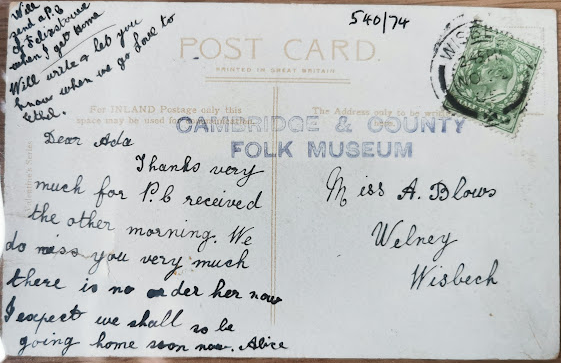 Will
send a P.C
of Felixstowe
when I get home
Will write & let you
know when we go love to
Ethel.
540/74
POST CARD.
PRINTED IN GREAT BRITAIN
WISBECH
For INLAND Postage only this
space may be used for communication.
The Address only to be
CAMBRIDGE & COUNTY
FOLK MUSEUM
Dear Ada
Thanks very
much for P.C received
the other morning. We
do miss you very much
there is no order her now
I expect we shall so be
going home soon now. Alice
Miss A. Blows
Welney
Wisbech